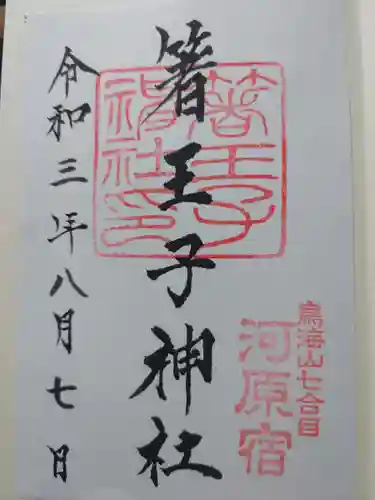 鳥海山七合目
河原宿
箸王子神社
箸王子
神社印
令和三年八月七日